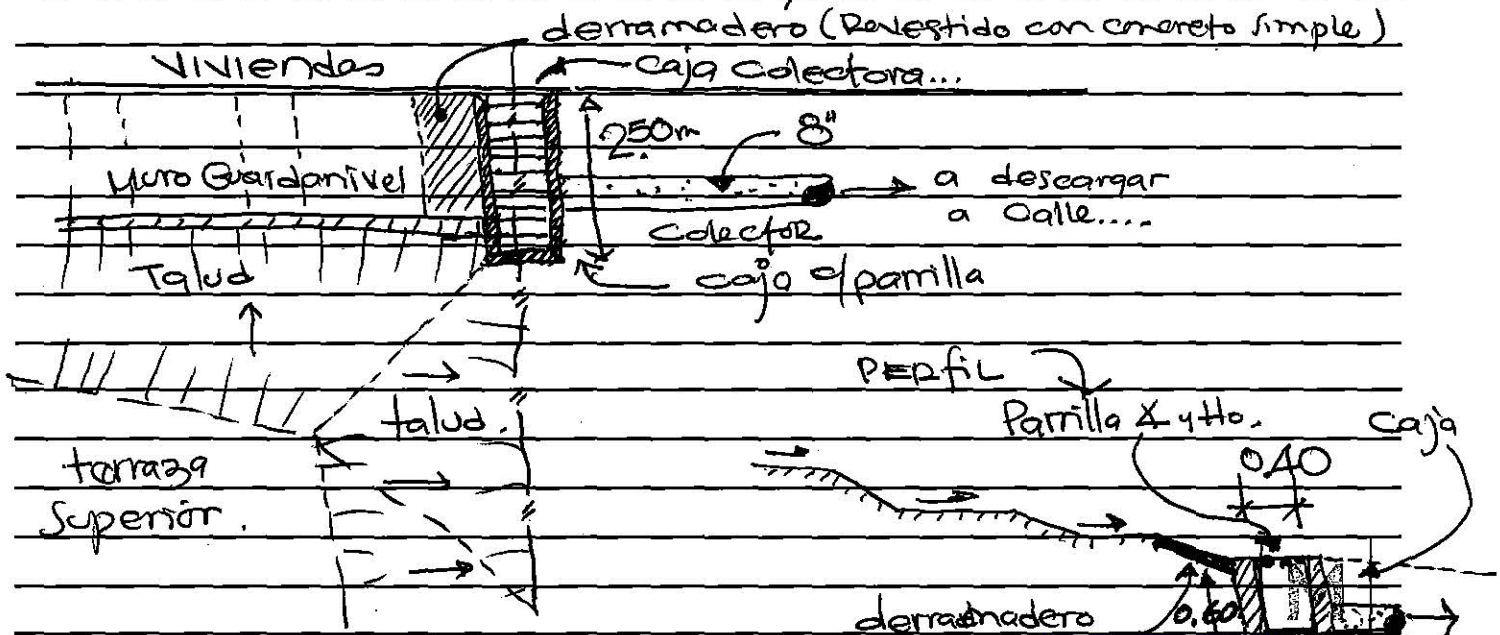 derramadero (Revestido con concreto simple)
Viviendas
Caja Colectora...
2.50m
8"
Muro Guardanivel
a descargar
a Calle.....
Colector
Talud
caja c/parrilla
PERfiL
talud.
Parrilla
y Ho.
Caja
terraza
0.40
Superior.
derramadero
0.60